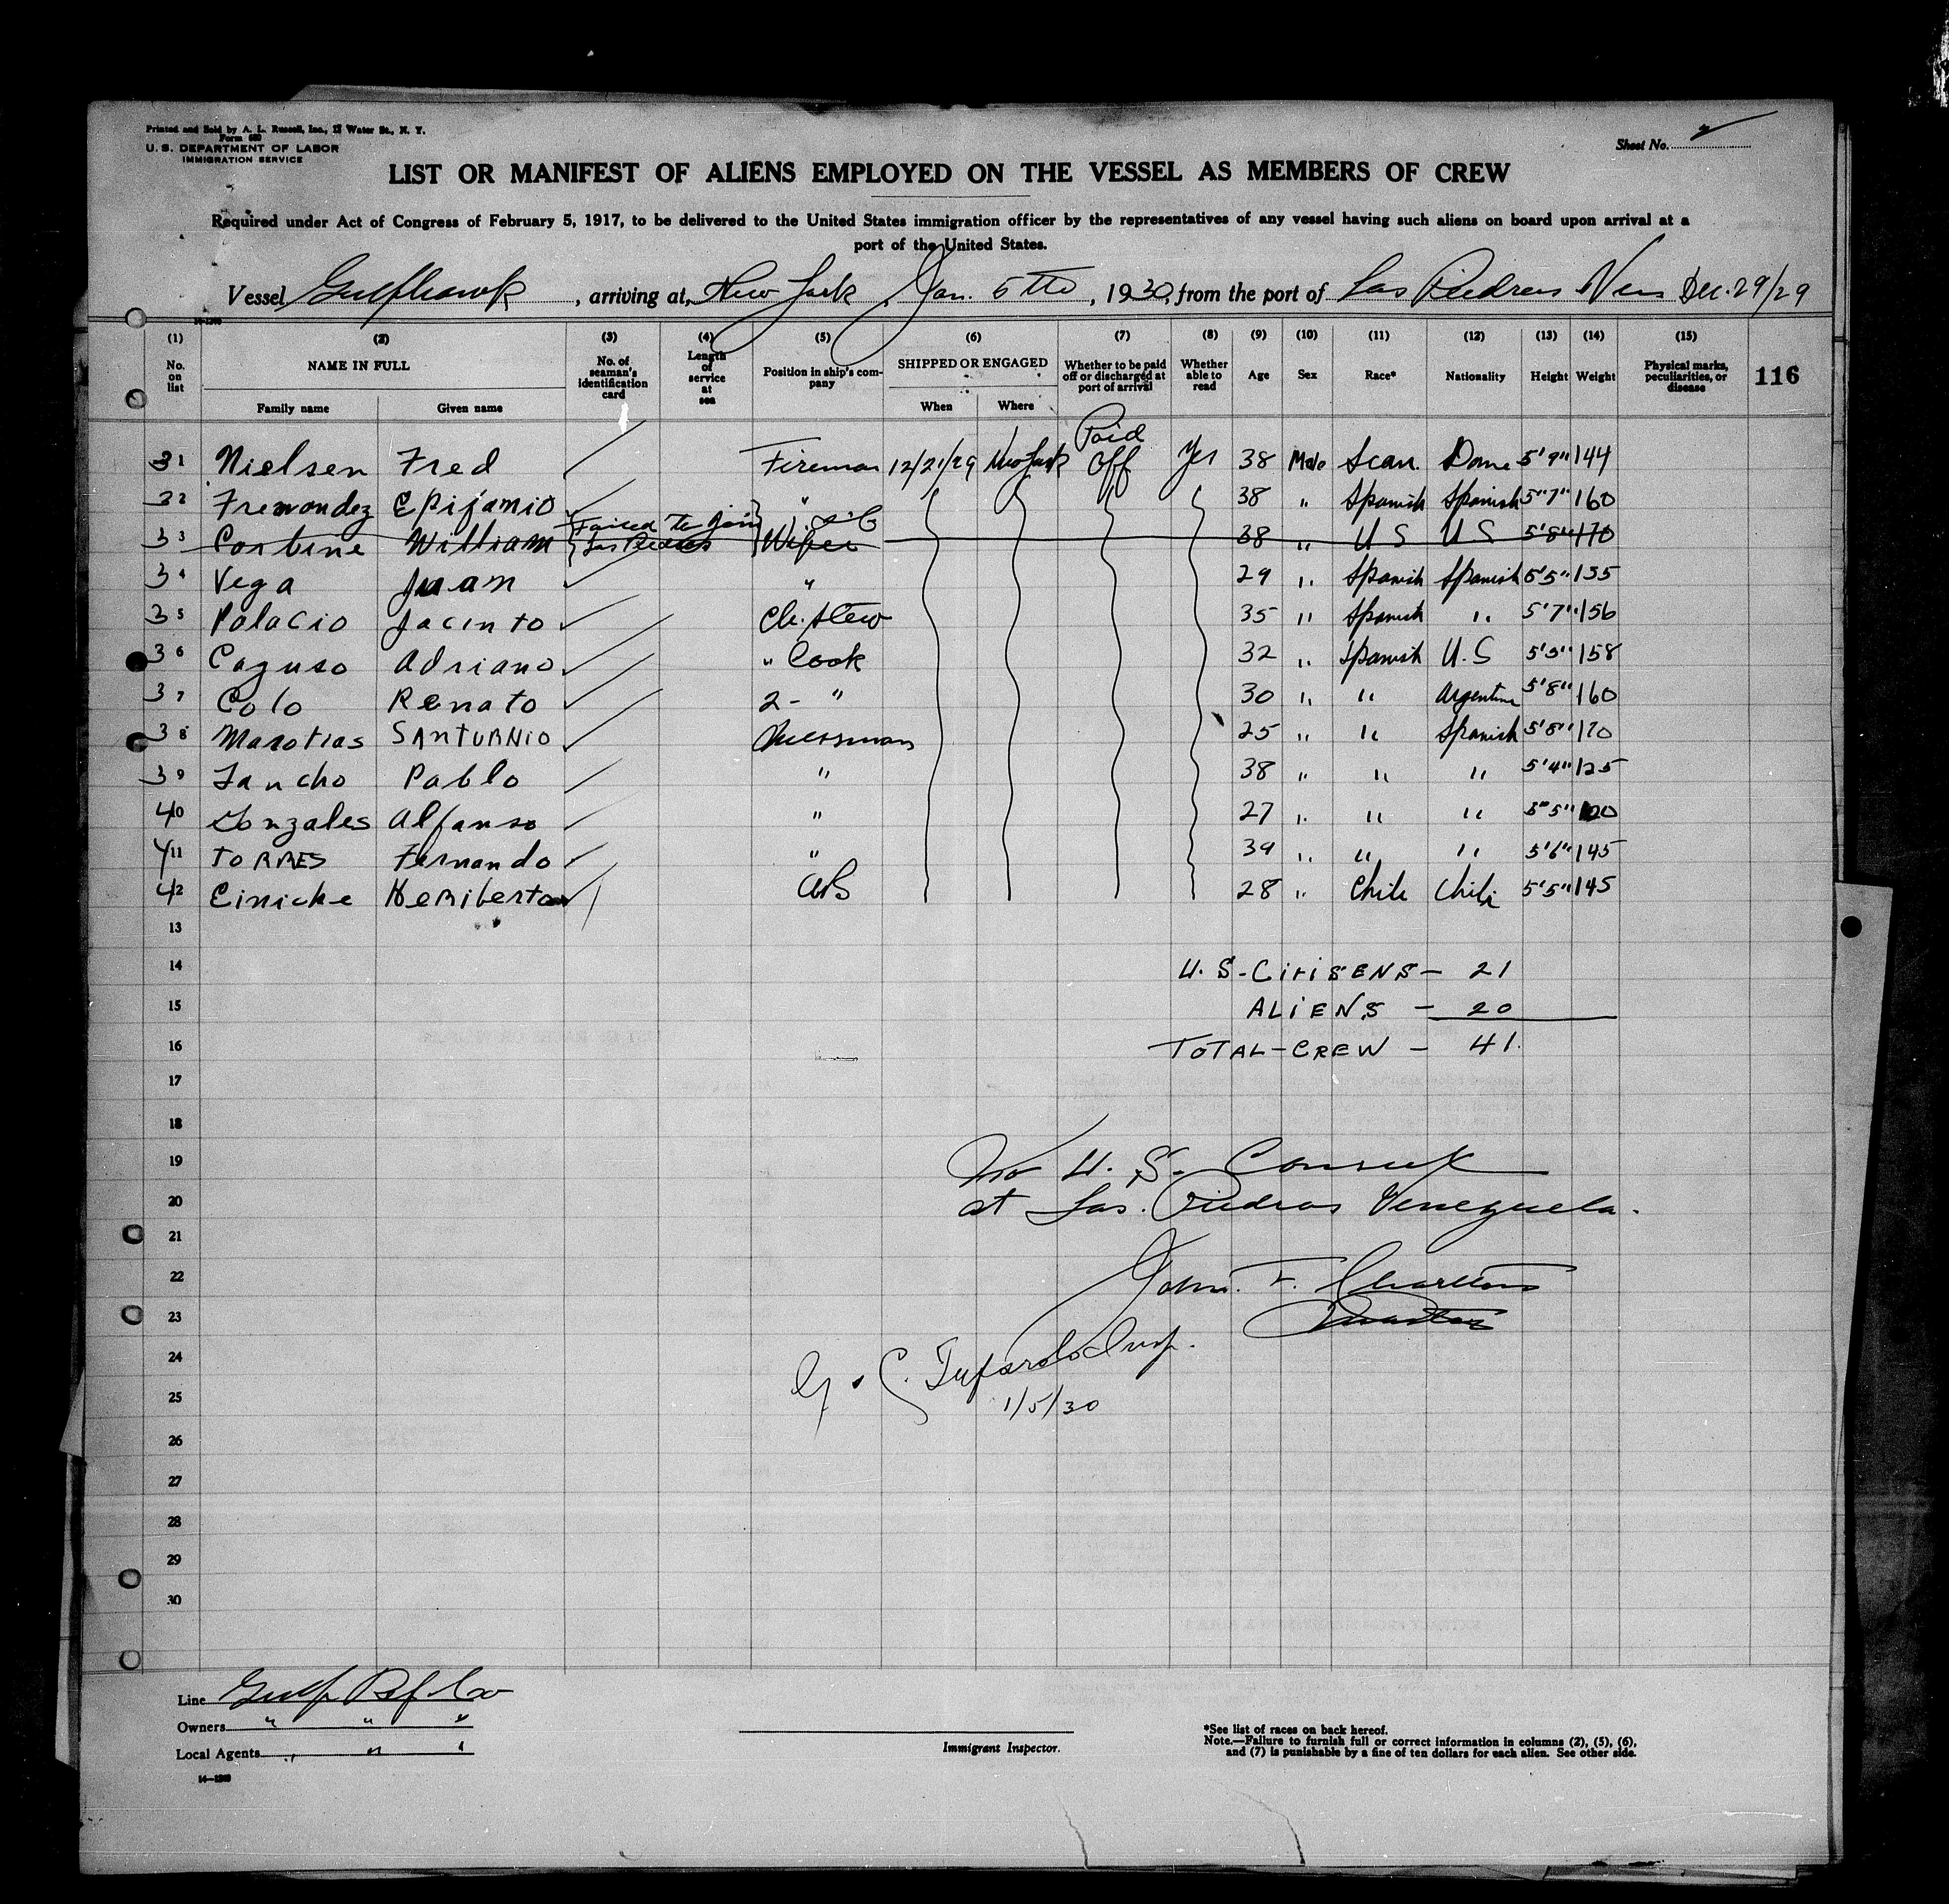 Printed and Sold by A. L. Russell, Inc., 12 Water St., N. Y.
Form 680
U. S. DEPARTMENT OF LABOR
IMMIGRATION SERVICE
Sheet No. 2
LIST OR MANIFEST OF ALIENS EMPLOYED ON THE VESSEL AS MEMBERS OF CREW
Required under Act of Congress of February 5, 1917, to be delivered to the United States immigration officer by the representatives of any vessel having such aliens on board upon arrival at a
port of the United States.
Vessel Gulfhawk, arriving at, New York, Jan. 5th, 1930, from the port of Las Piedras Ven Dec. 29/29
(1) (2) (3) (4) (5) (6) (7) (8) (9) (10) (11) (12) (13) (14) (15)
No. on list NAME IN FULL Family name Given name No. of seaman's identification card Length of service at sea Position in ship's company SHIPPED OR ENGAGED When Where Whether to be paid off or discharged at port of arrival Whether able to read Age Sex Race* Nationality Height Weight Physical marks, peculiarities, or disease 116
31 Nielsen Fred Fireman 12/21/29 New York Paid Off Yes 38 Male Scan. Dane 5'9" 144
32 Fremondez Epifamio " 38 " Spanish Spanish 5'7" 160
33 Corbine William Failed To Join Las Piedras Wiper 38 " U S U S 5'8" 170
34 Vega Juan " 29 " Spanish Spanish 5'5" 135
35 Palacio Jacinto Ch. Stew 35 " Spanish " 5'7" 156
36 Caguso Adriano " Cook 32 " Spanish U.S 5'5" 158
37 Colo Renato 2- " 30 " " Argentine 5'8" 160
38 Marotias SANTURNIO Messman 25 " " Spanish 5'8" 170
39 Sancho Pablo " 38 " " " 5'4" 125
40 Gonzales Alfanso " 27 " " " 5'5" 120
41 TORRES Fernando " 39 " " " 5'6" 145
42 Einicke Heriberto AB 28 " Chile Chili 5'5" 145
13
14 U. S - CITISENS - 21
15 ALIENS - 20
16 TOTAL - CREW - 41.
17
18
19 No U. S. Consul
20 at Las. Piedras Venezuela.
21
22 John. F. Charlton
23 Master
24 G. C. Tufarolo Insp.
25 1/5/30
26
27
28
29
30
Line Gulf Ref Co
Owners " " "
Local Agents " " "
14—1249
Immigrant Inspector.
*See list of races on back hereof.
Note.—Failure to furnish full or correct information in columns (2), (5), (6),
and (7) is punishable by a fine of ten dollars for each alien. See other side.